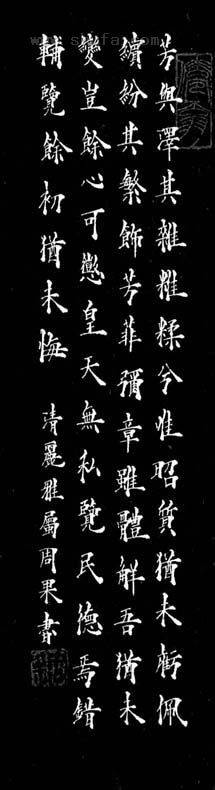 芳與澤其雜糅兮惟昭質猶未虧佩
繽紛其繁飾芳菲彌章雖體解吾猶未
變豈餘心可懲皇天無私覽民德焉錯
輔覽餘初猶未悔
清麗雅屬周果書